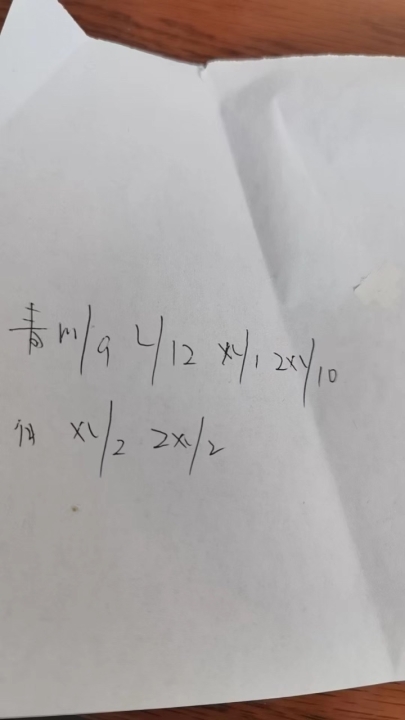 青 M/9 L/12 XL/1 2XL/10
XL/2 2XL/2